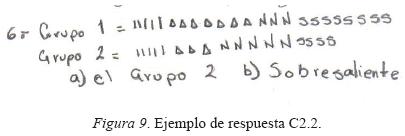 6- Grupo 1 = IIIII AAAAAA NNN SSSSSSSS
Grupo 2 = IIIII AAA NNNNN SSSS
a) el Grupo 2 b) Sobresaliente
Figura 9. Ejemplo de respuesta C2.2.